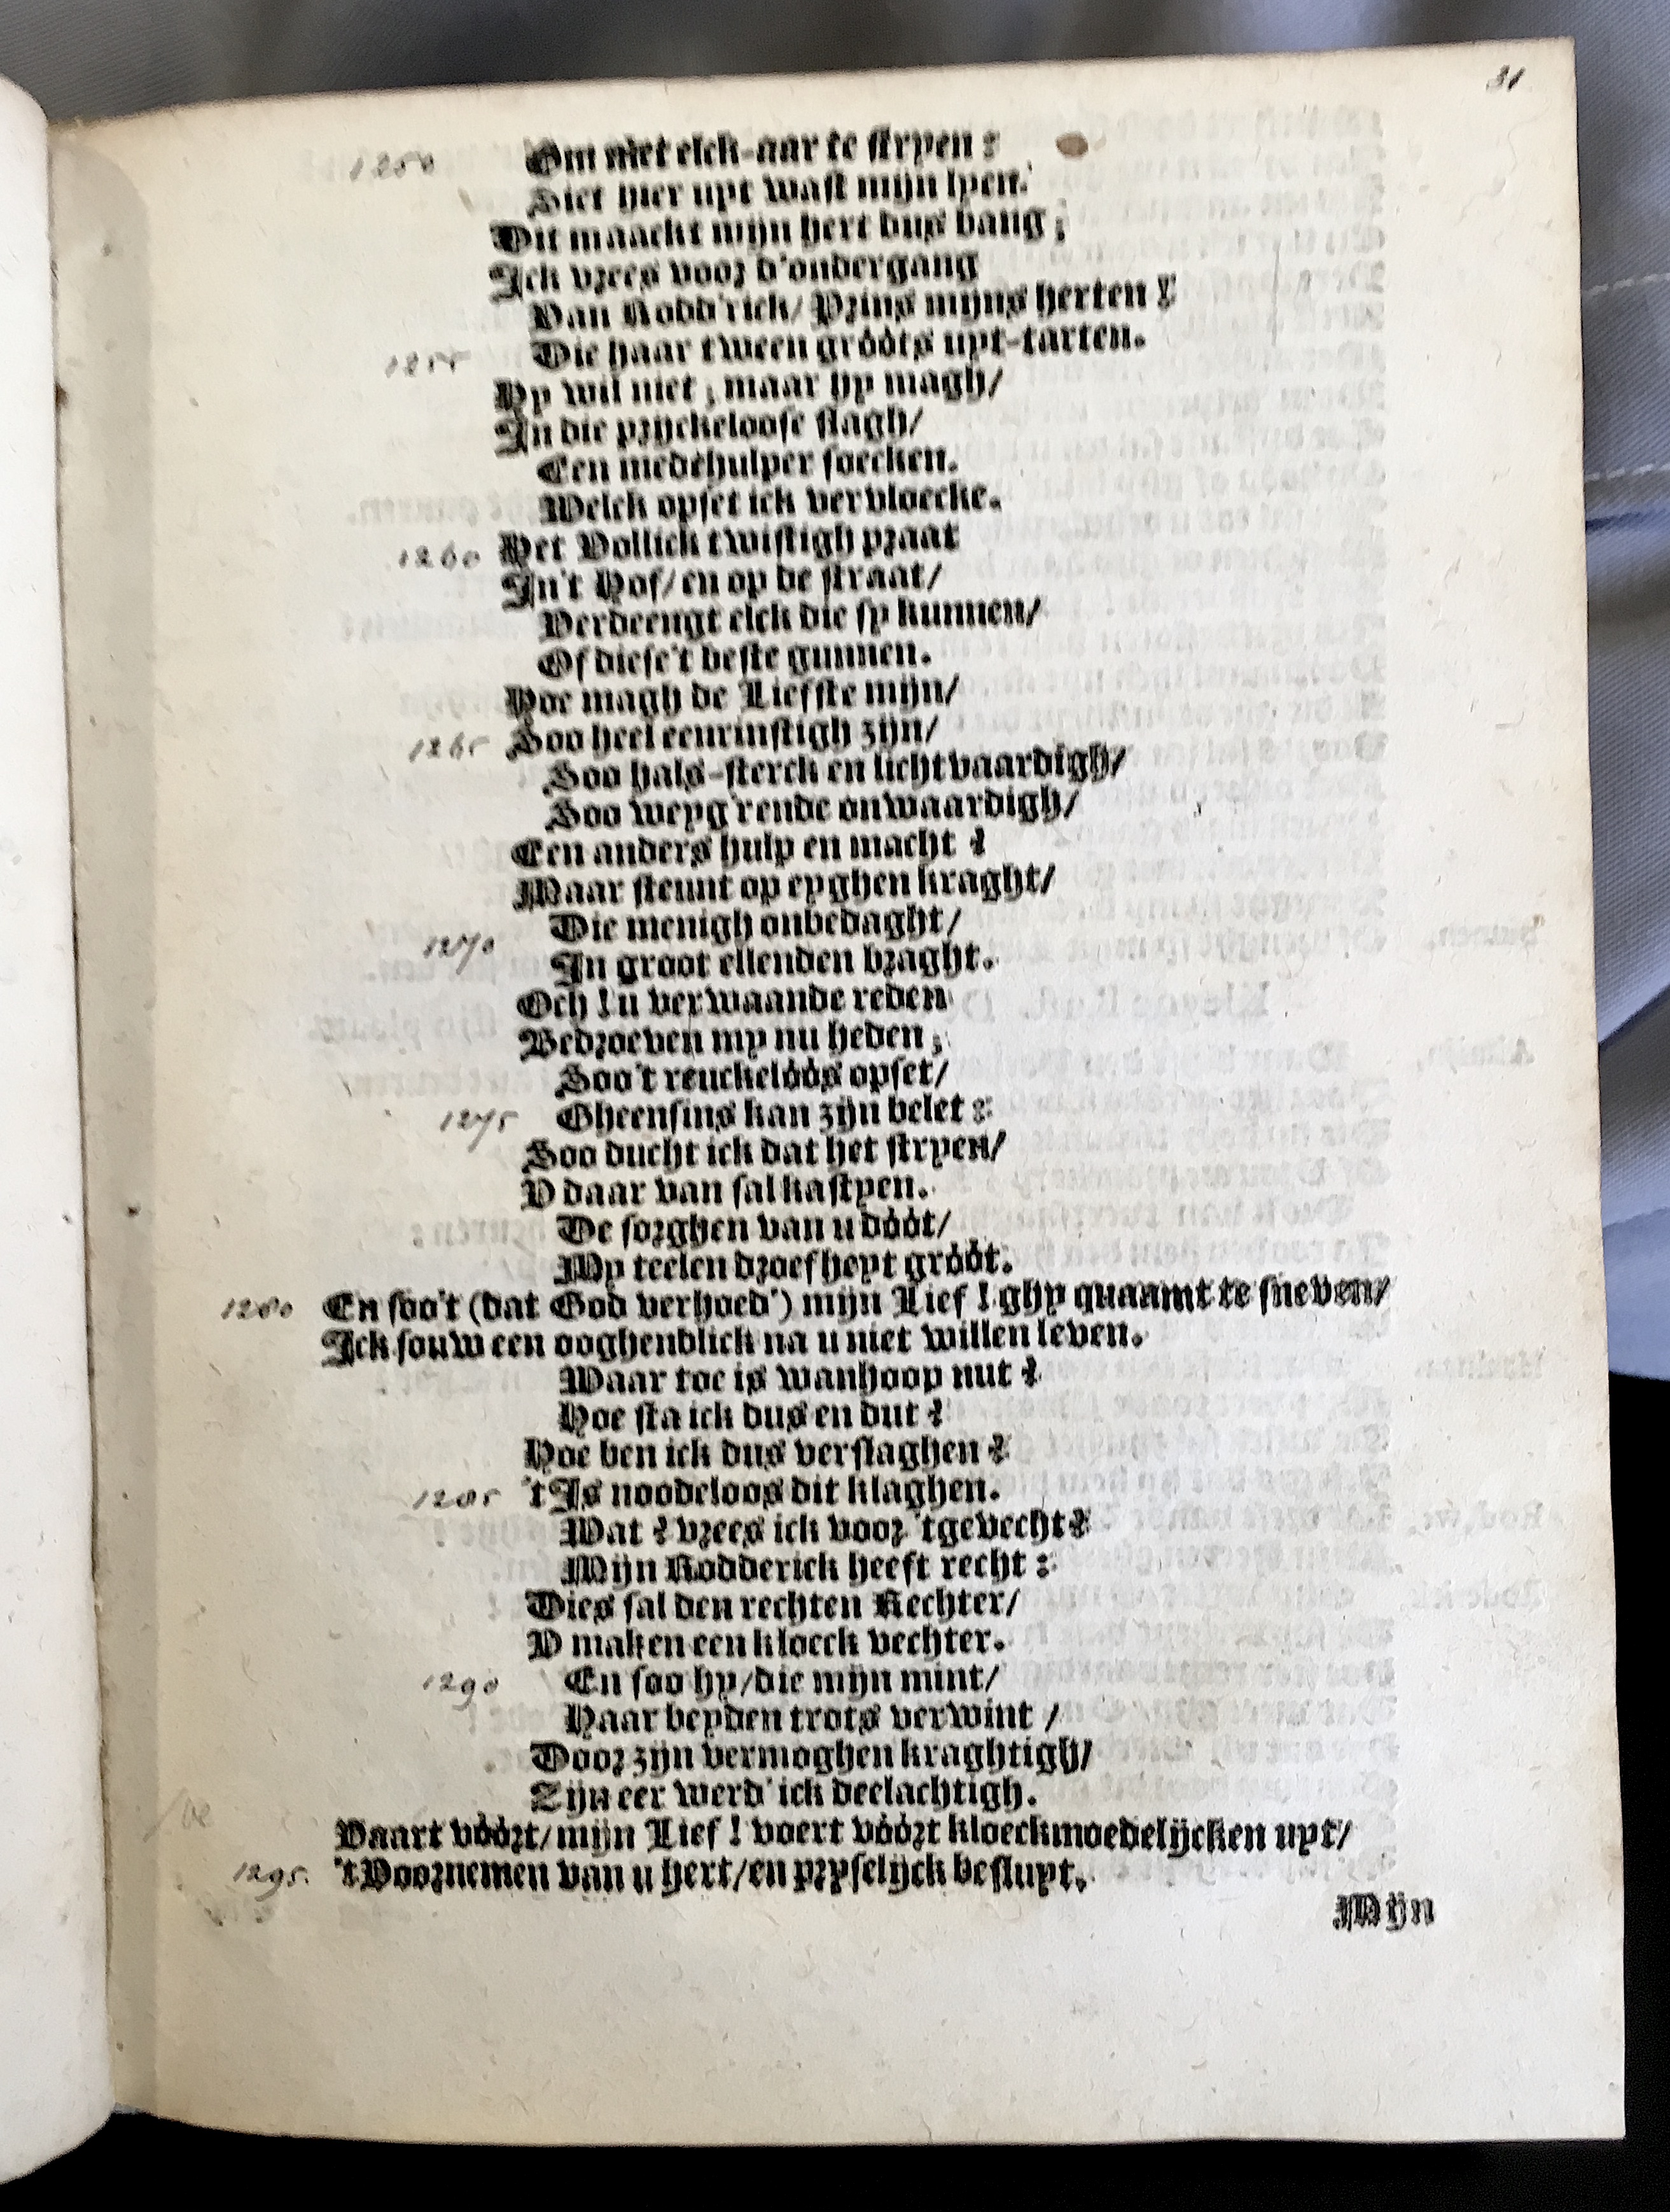 31
1250 Om met elck-aar te stryen:
Siet hier uyt wast mijn lyen.
Dit maackt mijn hert dus bang;
Ick vrees voor d'ondergang
Van Rodd'rick/ Prins mijns herten!
1255 Die haar tween gróóts uyt-tarten.
Hy wil niet; maar hy magh/
In die pryckeloose slagh/
Een medehulper soecken.
Welck opset ick vervloecke.
1260 Het Vollick twistigh praat
In't Hof/ en op de straat/
Verdeengt elck die sy kunnen/
Of diese't beste gunnen.
Hoe magh de Liefste mijn/
1265 Soo heel eenrinstigh zijn/
Soo hals-sterck en lichtvaardigh/
Soo weyg'rende onwaardigh/
Een anders hulp en macht?
Maar steunt op eyghen kraght/
1270 Die menigh onbedaght/
In groot ellenden braght.
Och! u verwaande reden
Bedroeven my nu heden;
Soo't reuckelóós opset/
1275 Gheensins kan zijn belet:
Soo ducht ick dat het stryen/
V daar van sal kastyen.
De sorghen van u dóót/
My teelen droefheyt gróót.
1280 En soo't (dat God verhoed') mijn Lief! ghy quaamt te sneven/
Ick souw een ooghenblick na u niet willen leven.
Waar toe is wanhoop nut?
Hoe sta ick dus en dut?
Hoe ben ick dus verslaghen?
1285 't Is noodeloos dit klaghen.
Wat? vrees ick voor 'tgevecht?
Mijn Rodderick heeft recht:
Dies sal den rechten Rechter/
V maken een kloeck vechter.
1290 En soo hy/ die mijn mint/
Haar beyden trots verwint/
Door zijn vermoghen kraghtigh/
Zijn eer werd' ick deelachtigh.
Vaart vóórt/ mijn Lief! voert vóórt kloeckmoedelijcken uyt/
1295. 't Voornemen van u hert/ en pryselijck besluyt.
Mijn